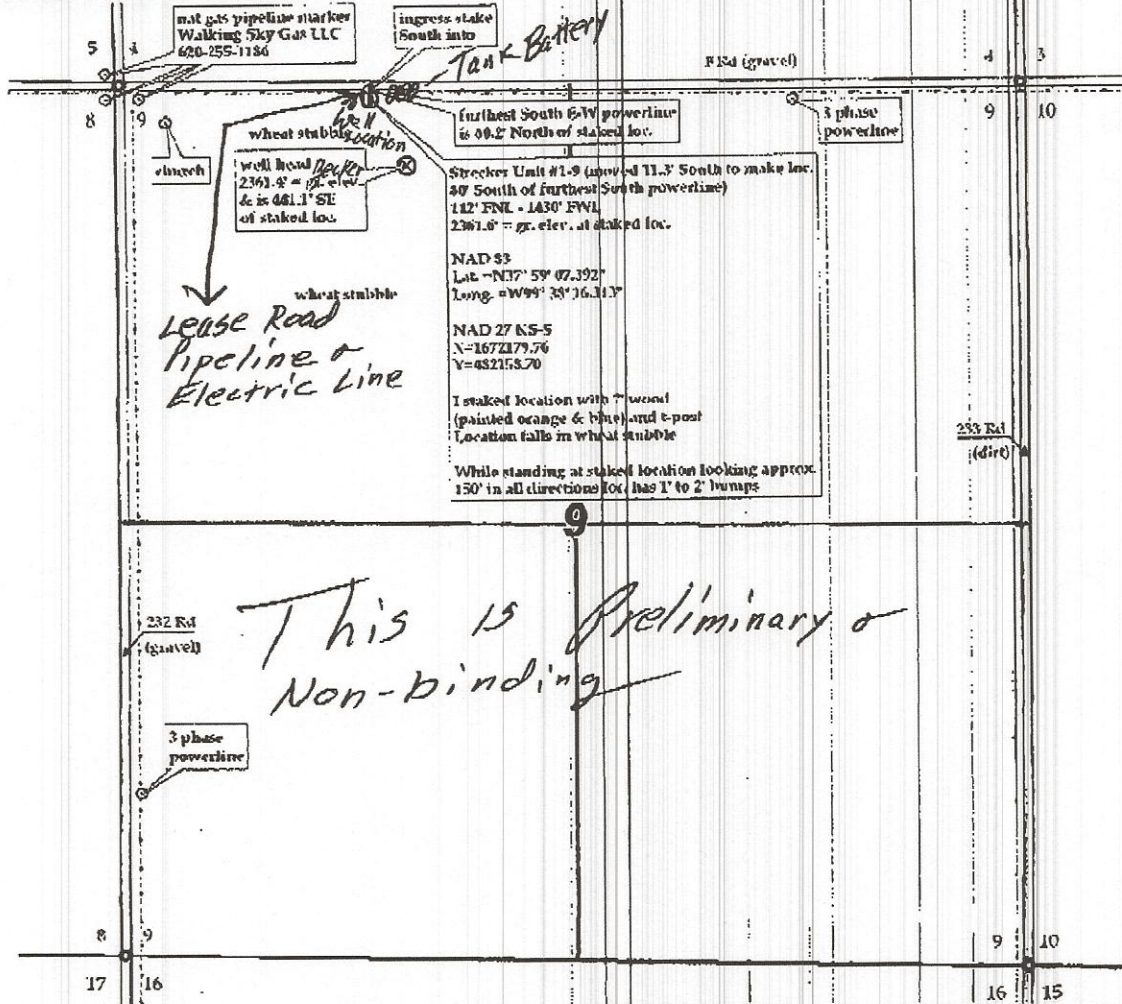 nat gas pipeline marker
Walking Sky Gas LLC
620-255-1186
ingress stake
South into
Tank Battery
5 4
8 9
4 3
9 10
F Rd (gravel)
Well
Location
wheat stubble
furthest South E-W powerline
is 40.2' North of staked loc.
3 phase
powerline
church
well head Becker
2361.4' = gr. elev
& is 441.1' SE
of staked loc.
Strecker Unit #1-9 (moved 11.3' South to make loc.
40' South of furthest South powerline)
112' FNL - 1430' FWL
2361.6' = gr. elev. at staked loc.
NAD 83
Lat. =N37° 59' 07.392"
Long. =W99° 38'
NAD 27 KS-S
X=1672179.76
Y=482158.70
I staked location with wood
(painted orange & blue) and t-post
Location falls in wheat stubble
While standing at staked location looking approx.
150' in all directions loc. has 1' to 2' bumps
wheat stubble
Lease Road
Pipeline &
Electric Line
233 Rd
(dirt)
9
This is Preliminary &
Non-binding
232 Rd
(gravel)
3 phase
powerline
8 9
17 16
9 10
16 15